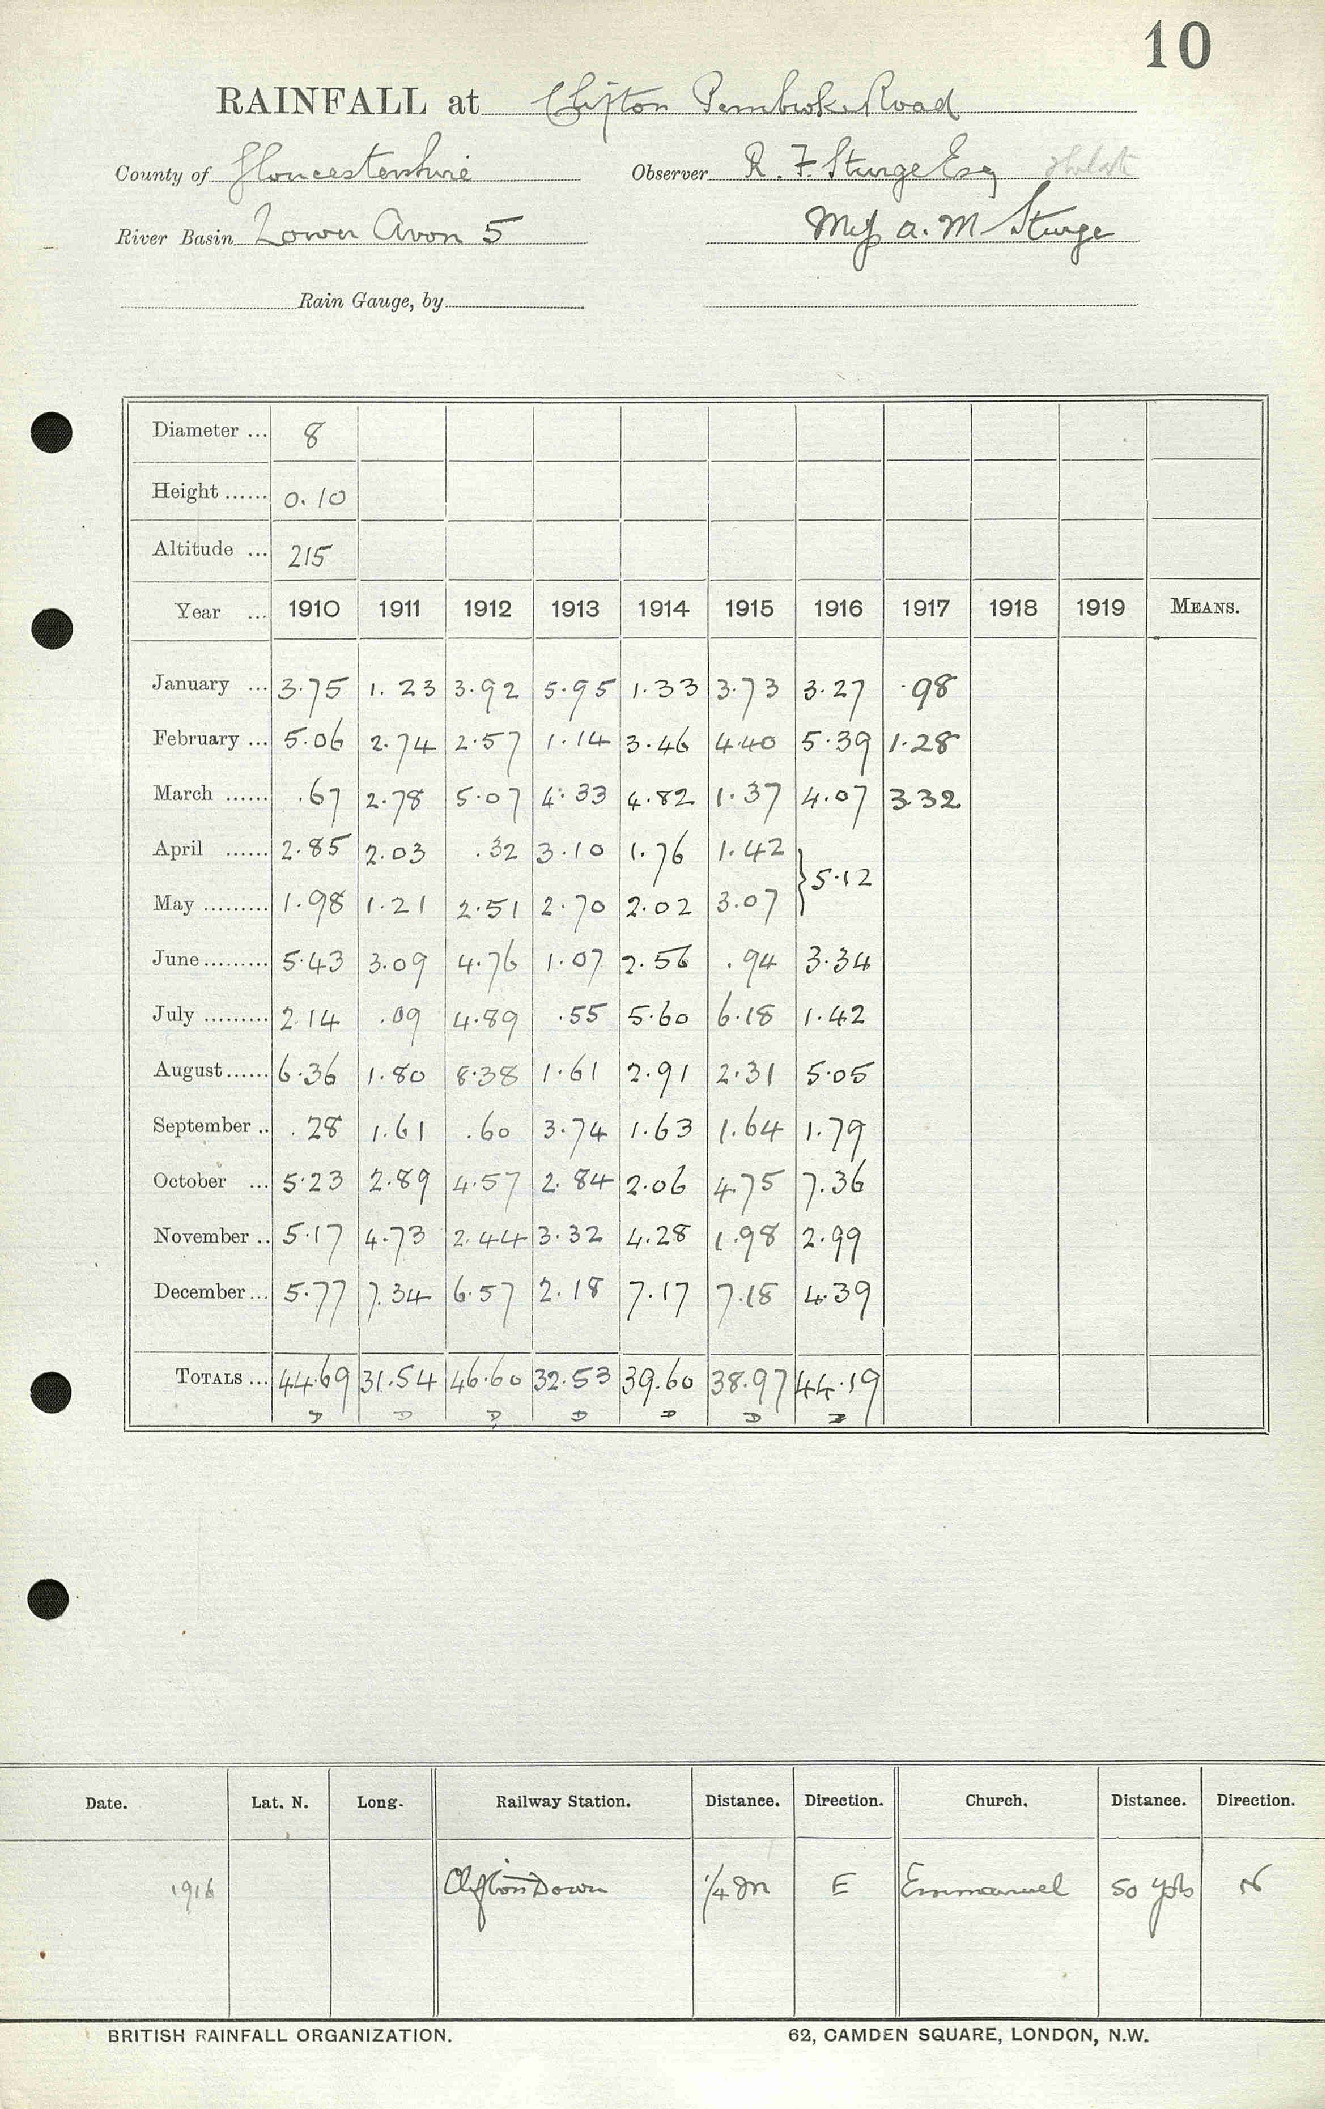 10
RAINFALL at Clifton Pembroke Road
County of Gloucestershire Observer R. F. Sturge Esq
River Basin Lower Avon 5 Miss A. M Sturge
Rain Gauge, by
Diameter ... 8
Height ...... 0.10
Altitude ... 215
Year ... 1910 1911 1912 1913 1914 1915 1916 1917 1918 1919 MEANS.
January ... 3.75 1.23 3.92 5.95 1.33 3.73 3.27 .98
February ... 5.06 2.74 2.57 1.14 3.46 4.40 5.39 1.28
March ...... .67 2.78 5.07 4.33 4.82 1.37 4.07 3.32
April ...... 2.85 2.03 .32 3.10 1.76 1.42
} 5.12
May ......... 1.98 1.21 2.51 2.70 2.02 3.07
June ......... 5.43 3.09 4.76 1.07 2.56 .94 3.34
July ......... 2.14 .09 4.89 .55 5.60 6.18 1.42
August ...... 6.36 1.80 8.38 1.61 2.91 2.31 5.05
September .. .28 1.61 .60 3.74 1.63 1.64 1.79
October ... 5.23 2.89 4.57 2.84 2.06 4.75 7.36
November .. 5.17 4.73 2.44 3.32 4.28 1.98 2.99
December ... 5.77 7.34 6.57 2.18 7.17 7.18 4.39
TOTALS ... 44.69 31.54 46.60 32.53 39.60 38.97 44.19
D D D D D D D
Date. Lat. N. Long. Railway Station. Distance. Direction. Church. Distance. Direction.
1916 Clifton Down 1/4 m E Emmanuel 50 yds N
BRITISH RAINFALL ORGANIZATION. 62, CAMDEN SQUARE, LONDON, N.W.